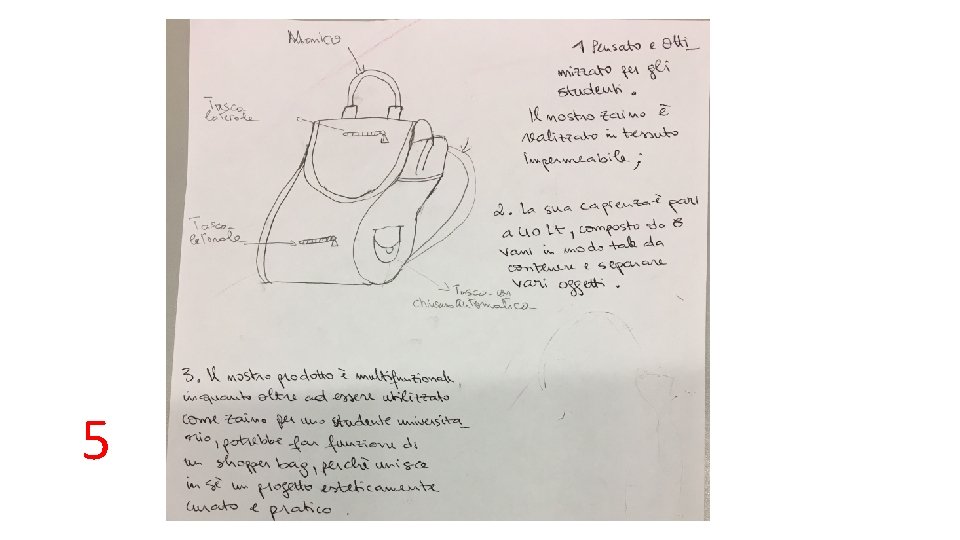 Manico
Tasca
laterale
Tasca
laterale
Tasca con
chiusura automatica
1 Pensato e otti_
mizzato per gli
studenti.
Il nostro zaino è
realizzato in tessuto
impermeabile;
2. La sua capienza è pari
a 40 Lt, composto da 8
vani in modo tale da
contenere e separare
vari oggetti.
3. Il nostro prodotto è multifunzionale,
inquanto oltre ad essere utilizzato
come zaino per uno studente universita_
rio, potrebbe far funzione di
un shopper bag, perchè unisce
in sè un progetto esteticamente
curato e pratico.
5